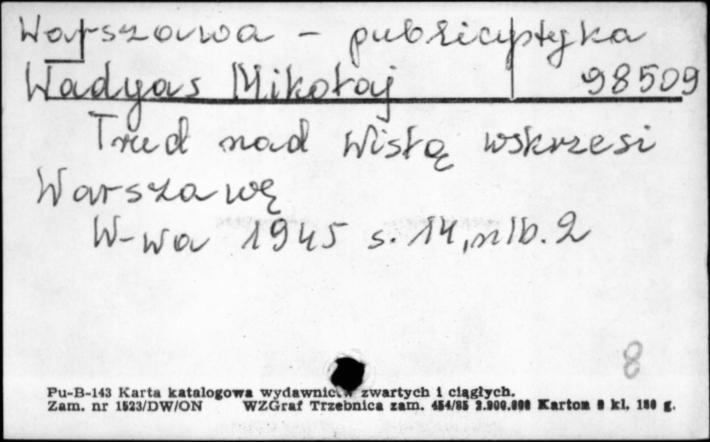 Warszawa - publicystyka
Wadyas Mikołaj 98509
Trud nad Wisłą wskrzesi
Warszawę
W-wa 1945 s. 14, nlb. 2
8
Pu-B-143 Karta katalogowa wydawnictw zwartych i ciągłych.
Zam. nr 1523/DW/ON WZGraf Trzebnica zam. 454/85 2.900.000 Karton 8 kl. 180 g.